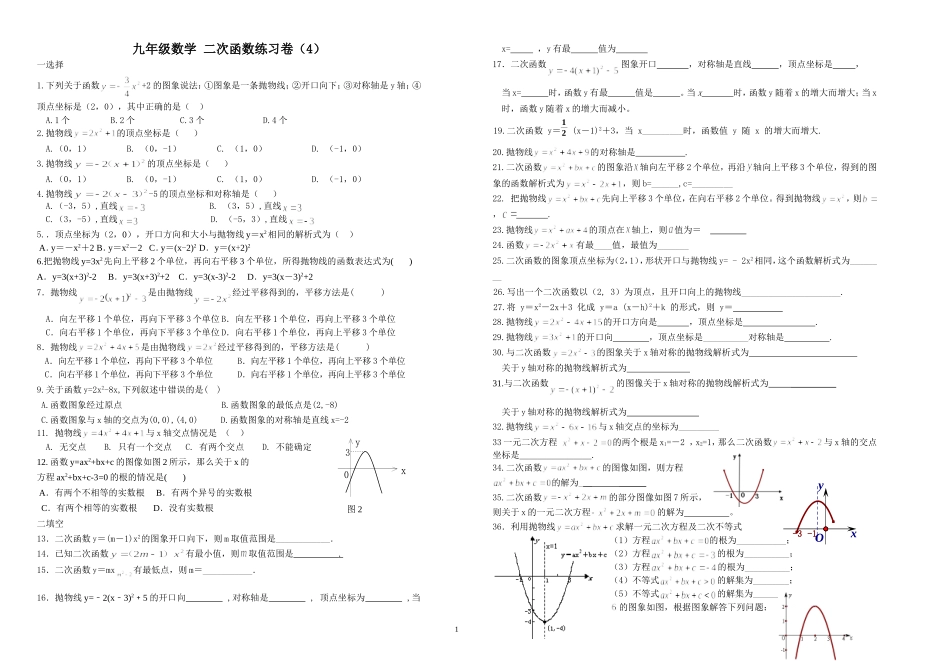 九年级数学 二次函数练习卷（4）
一选择
1.下列关于函数y=-3/4x²+2的图象说法：①图象是一条抛物线；②开口向下；③对称轴是y轴；④
顶点坐标是（2，0），其中正确的是（ ）
A.1个 B.2个 C.3个 D.4个
2.抛物线y=2x²-1的顶点坐标是（ ）
A.（0，1） B.（0，-1） C.（1，0） D.（-1，0）
3.抛物线y=-2(x+1)²的顶点坐标是（ ）
A.（0，1） B.（0，-1） C.（1，0） D.（-1，0）
4.抛物线y=-2(x-3)²-5的顶点坐标和对称轴是（ ）
A.（-3，5），直线x=-3 B.（3，5），直线x=3
C.（3，-5），直线x=3 D.（-5，3），直线x=-3
5.．顶点坐标为（2，0），开口方向和大小与抛物线y=x²相同的解析式为（ ）
A.y=－x²＋2 B.y=x²－2 C.y=(x-2)² D.y=(x+2)²
6.把抛物线y=3x²先向上平移2个单位，再向右平移3个单位，所得抛物线的函数表达式为( )
A．y=3(x+3)²-2 B．y=3(x+3)²+2 C．y=3(x-3)²-2 D．y=3(x－3)²+2
7．抛物线y=-2(x+1)²-3是由抛物线y=-2x²经过平移得到的，平移方法是( )
A．向左平移1个单位，再向下平移3个单位B．向左平移1个单位，再向上平移3个单位
C．向右平移1个单位，再向下平移3个单位D．向右平移1个单位，再向上平移3个单位
8．抛物线y=2x²+4x+5是由抛物线y=2x²经过平移得到的，平移方法是( )
A．向左平移1个单位，再向下平移3个单位 B．向左平移1个单位，再向上平移3个单位
C．向右平移1个单位，再向下平移3个单位 D．向右平移1个单位，再向上平移3个单位
9.关于函数y=2x²-8x,下列叙述中错误的是( )
A.函数图象经过原点 B.函数图象的最低点是(2,-8)
C.函数图象与x轴的交点为(0,0),(4,0) D.函数图象的对称轴是直线x=-2
11．抛物线y=4x²+4x+1与x轴交点情况是 （ ）
A．无交点 B．只有一个交点 C．有两个交点 D．不能确定
12.函数y=ax²+bx+c的图像如图2所示，那么关于x的
方程ax²+bx+c-3=0的根的情况是( )
A．有两个不相等的实数根 B．有两个异号的实数根
C．有两个相等的实数根 D．没有实数根
y
3
0
x
图2
二填空
13．二次函数y＝(m－1)x²的图象开口向下，则m取值范围是________．
14．已知二次函数y=(2m-1)x²有最小值，则m取值范围是________．
15．二次函数y＝mx有最低点，则m＝________．
16．抛物线y=﹣2(x－3)²﹢5的开口向______ ,对称轴是______ , 顶点坐标为______ ,当
x=____ ，y有最_____值为______
17．二次函数y=-4(x+1)²-5图象开口______，对称轴是直线_____，顶点坐标是_____，
当x=______时,函数y有最______值是_____。当x______时,函数y随着x的增大而增大；当x
时，函数y随着x的增大而减小。
19.二次函数 y＝1/2（x－1)²+3，当 x________时，函数值 y 随 x 的增大而增大.
20.抛物线y=x²+4x+9的对称轴是________.
21.二次函数y=x²+bx+c的图象沿x轴向左平移2个单位，再沿y轴向上平移3个单位，得到的图
象的函数解析式为y=x²-2x+1，则b=_____,c=________
22．把抛物线y=x²+bx+c先向上平移3个单位,在向右平移2个单位,得到抛物线y=x²,则b=
，c=_____.
23.抛物线y=x²-ax+4的顶点在x轴上，则a值为＝ ______
24.函数y=-2x²+x有最____值，最值为_______
25.二次函数的图象顶点坐标为(2,1),形状开口与抛物线y= - 2x²相同,这个函数解析式为____
__
26.写出一个二次函数以（2，3）为顶点，且开口向上的抛物线________________.
27.将 y＝x²－2x＋3 化成 y＝a（x－h)²＋k 的形式，则 y＝________
28.抛物线y=2x²-4x+15的开口方向是_____，顶点坐标是____________.
29.抛物线y=3x²+1的开口向______，顶点坐标是_______对称轴是_________.
30.与二次函数y=2x²-3的图象关于x轴对称的抛物线解析式为________________
关于y轴对称的抛物线解析式为______________
31.与二次函数y=-(x+1)²-2的图像关于x轴对称的抛物线解析式为___________
关于y轴对称的抛物线解析式为___________
32.抛物线y=x²-6x-16与x轴交点的坐标为_________
33一元二次方程 x²+x-2=0的两个根是x₁=－2 ,x₂=1,那么二次函数y=x²+x-2与x轴的交点
坐标是____________.
34.二次函数y=ax²+bx+c的图像如图，则方程
ax²+bx+c=0的解为__________
y
-1
0
3
x
35.二次函数y=-x²-2x+m的部分图像如图7所示,
则关于x的一元二次方程-x²-2x+m=0的解为________。
y
-3
-1
O
x
36．利用抛物线y=ax²+bx+c求解一元二次方程及二次不等式
（1）方程ax²+bx+c=0的根为________；
（2）方程ax²+bx+c=-3的根为________；
（3）方程ax²+bx+c=-4的根为________；
（4）不等式ax²+bx+c>0的解集为______；
（5）不等式ax²+bx+c<0的解集为______
6的图象如图，根据图象解答下列问题：
y
x=1
y=ax²+bx+c
-1
1
3
x
-3
-4
(1,-4)
y
2
1
-1
1
2
3
4
x
1